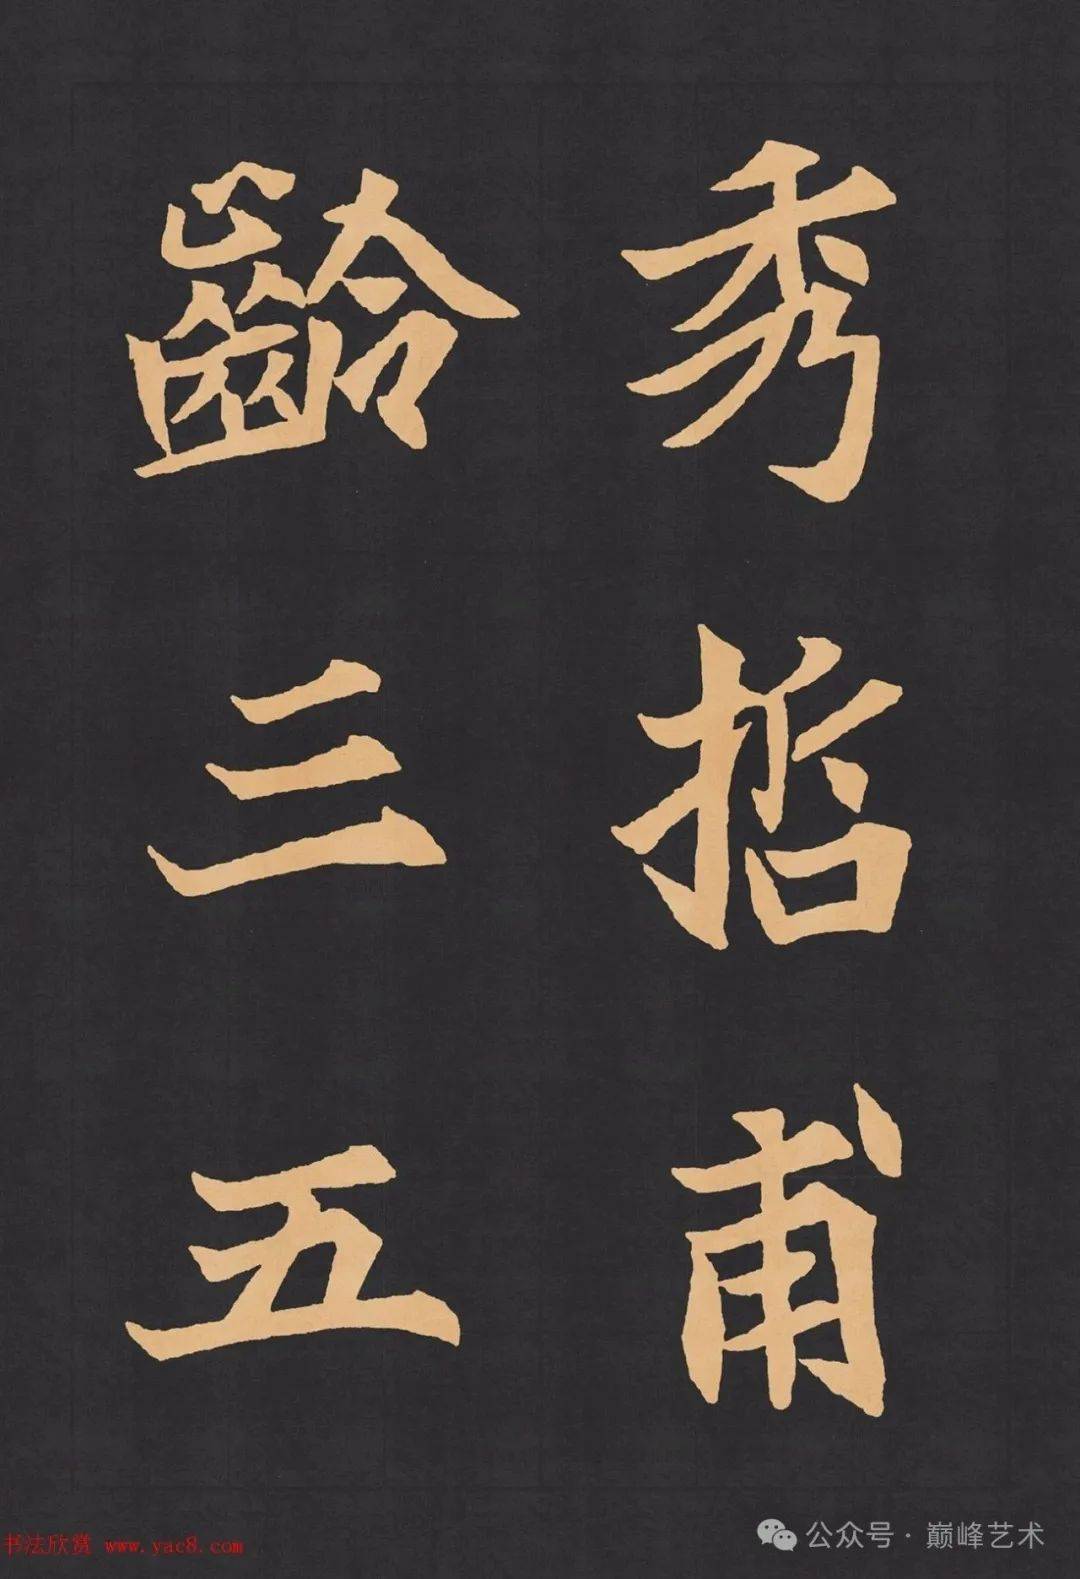 秀哲甫
齡三五
书法欣赏 www.yac8.com
公众号·巅峰艺术